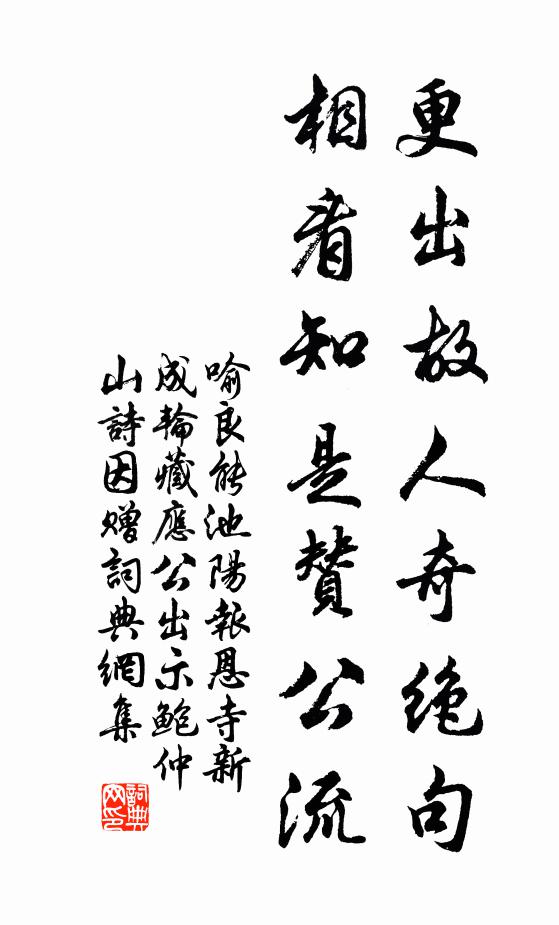 更出故人奇绝句
相看知是赞公流
喻良能池陽報恩寺新
成輪藏應公出示鮑仲
山詩因贈詞典網集
詞典
网印